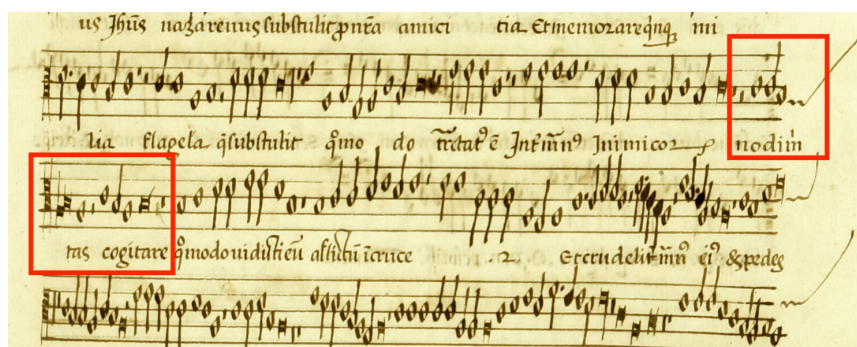 us Jhūs nazarenus substulit ꝓ nr̄a amicitia Et memorare qn̄qꝫ mi
lia flagela q̄ substulit q̄mo do tractatꝰ ē Int̄ mānꝰ Inimicorꝝ no dim̄
tas cogitare q̄modo vidisti eū afflictū ī cruce Et crudelit̄ mān̄ eiꝰ & pedes